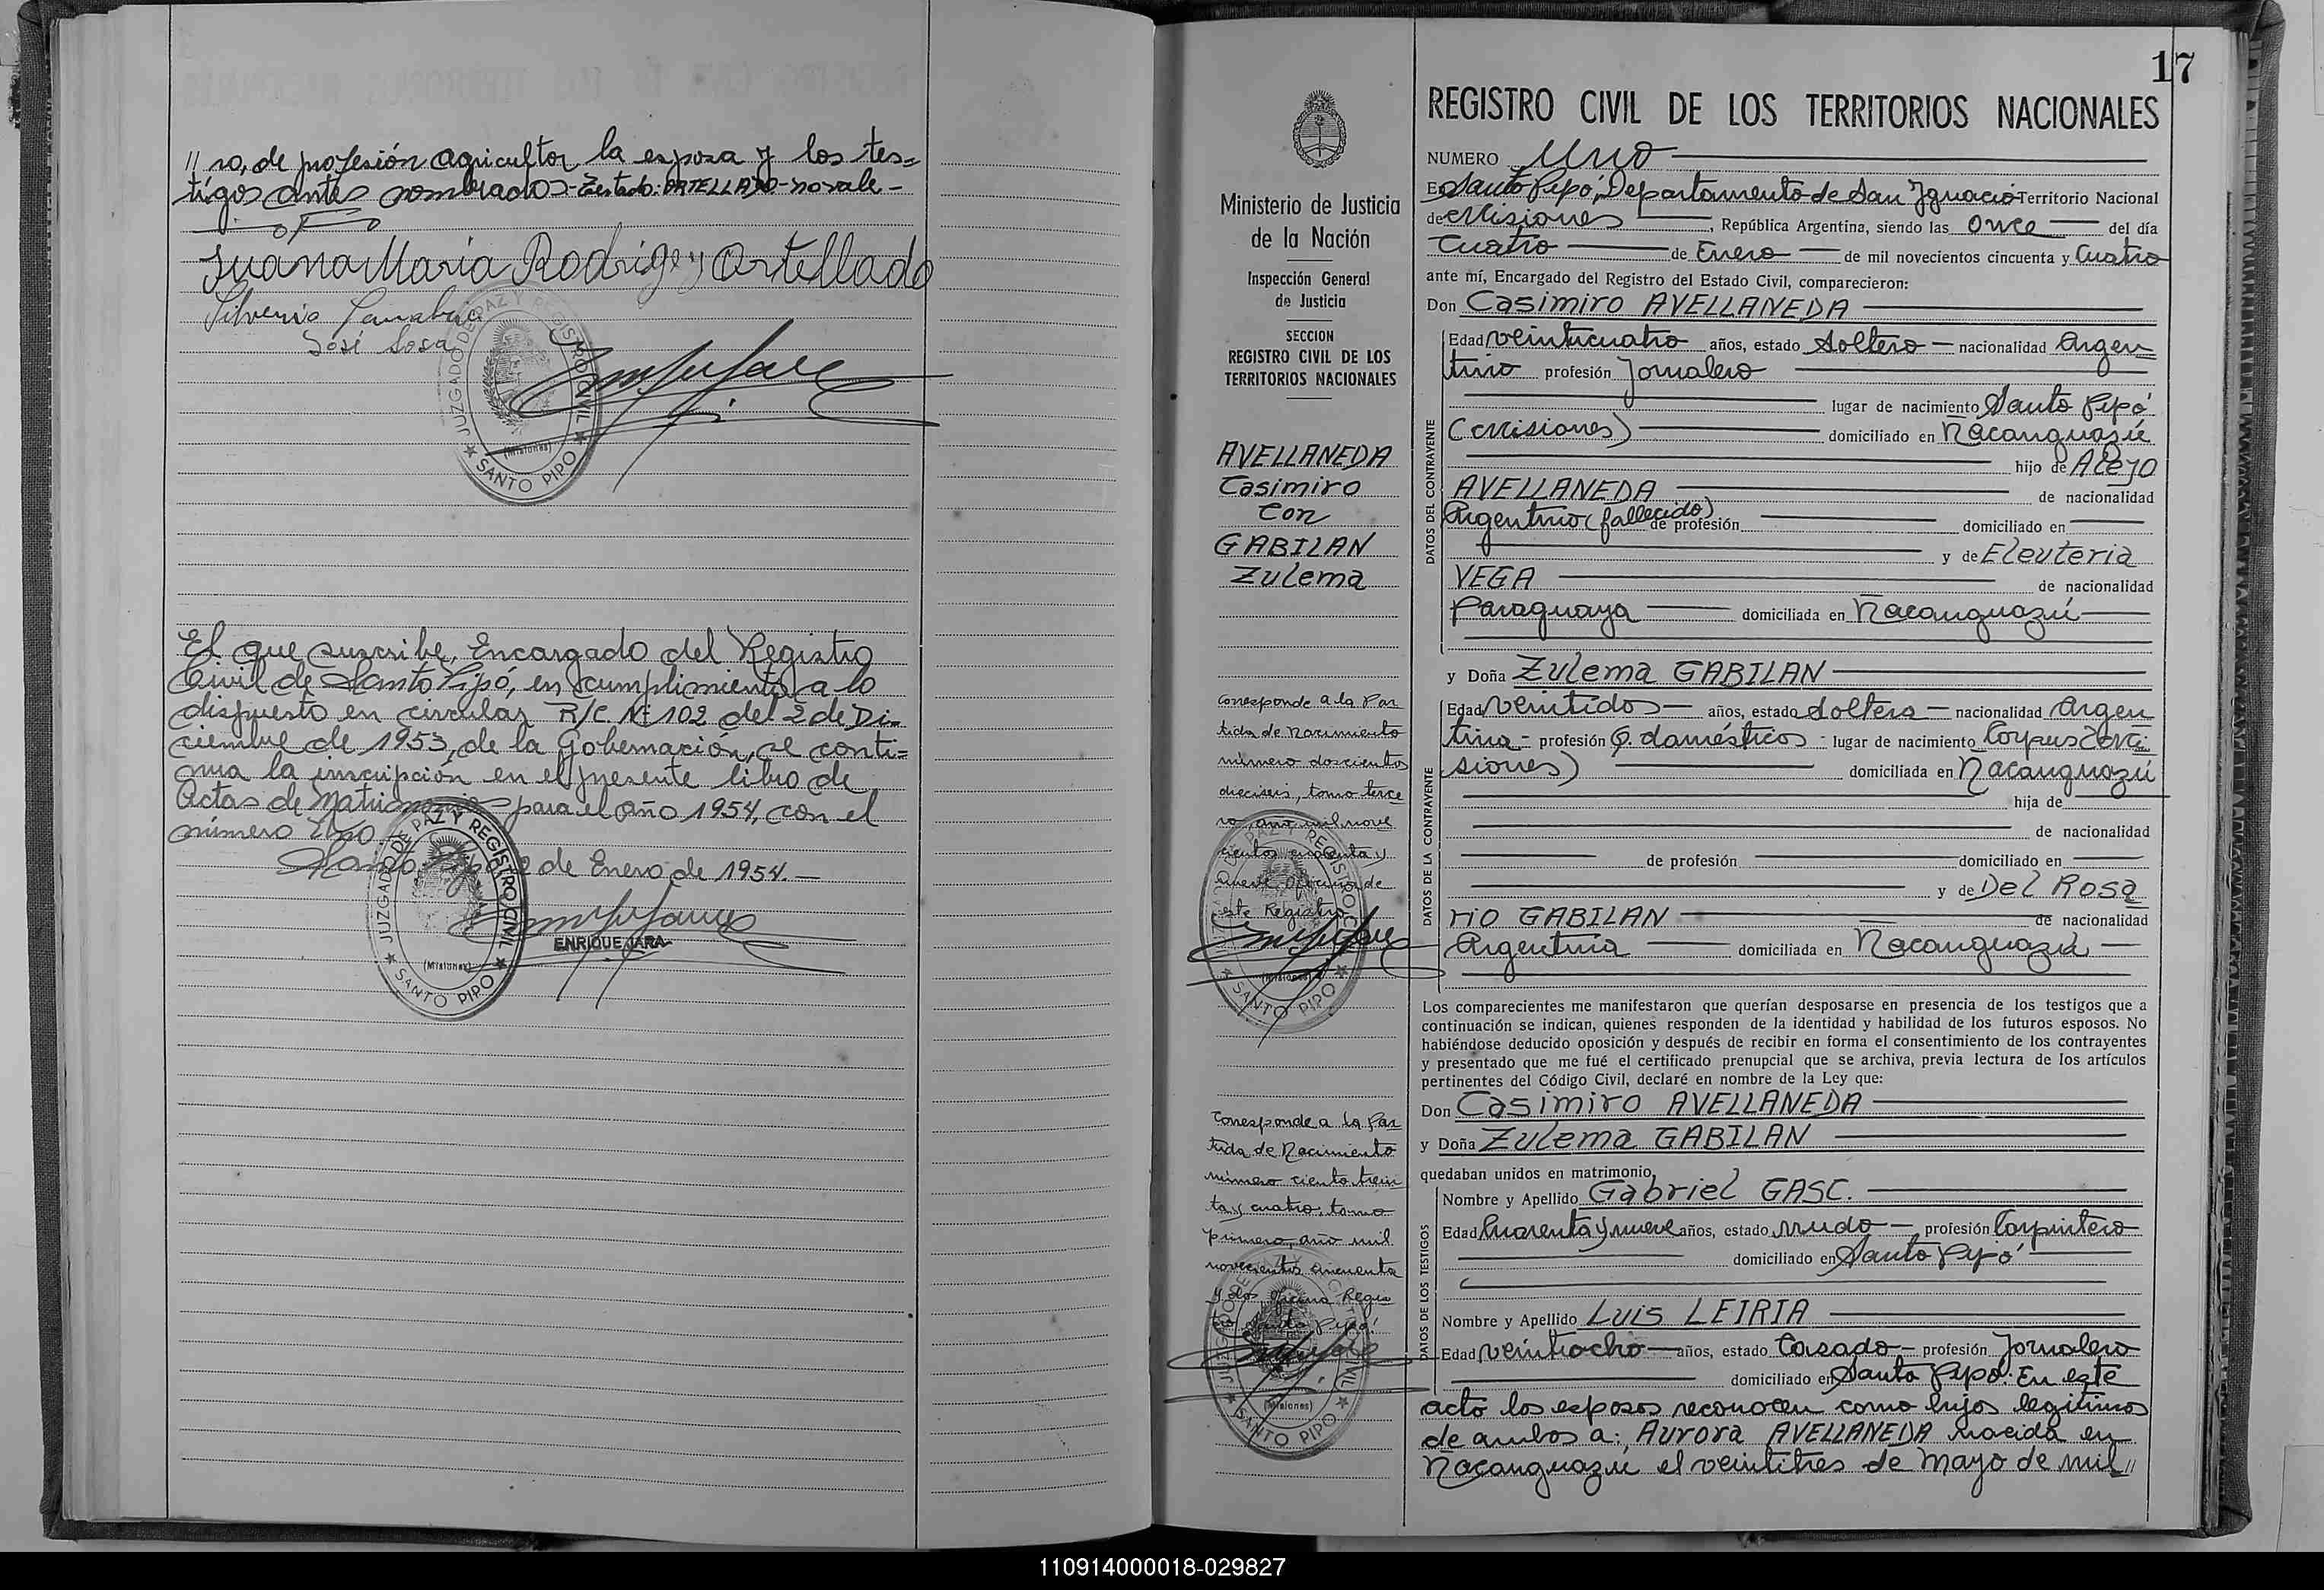 // ro, de profesión agricultor, la esposa y los tes=
tigos antes nombrados - Testado: ARTELLADO - no vale -
Juana Maria Rodrigez Artellado
Silverio Sanabria
José Sosa
JUZGADO DE PAZ Y REGISTRO CIVIL
(Misiones)
★ SANTO PIPO ★
El que suscribe, Encargado del Registro
Civil de Santo Pipó, en cumplimiento a lo
dispuesto en circular R/C. Nº 102 del 2 de Di-
ciembre de 1953, de la Gobernación, se conti=
nua la inscripción en el presente libro de
Actas de Matrimonios para el año 1954, con el
número Uno
Santo Pipó 2 de Enero de 1954.—
JUZGADO DE PAZ Y REGISTRO CIVIL
ENRIQUE JARA
(Misiones)
★ SANTO PIPO ★
17
Ministerio de Justicia
de la Nación
Inspección General
de Justicia
SECCION
REGISTRO CIVIL DE LOS
TERRITORIOS NACIONALES
AVELLANEDA
Casimiro
con
GABILAN
Zulema
Corresponde a la Par
tida de Nacimiento
número doscientos
dieciseis, tomo terce
ro, año mil nove
cientos cincuenta y
nueve, oficina de
este Registro
JUZGADO DE PAZ Y REGISTRO CIVIL
(Misiones)
★ SANTO PIPO ★
Corresponde a la Par
tida de Nacimiento
número ciento trein
ta y cuatro, tomo
primero, año mil
novecientos cincuenta
y dos oficina Regis
tro Santo Pipó!
JUZGADO DE PAZ Y REGISTRO CIVIL
(Misiones)
★ SANTO PIPO ★
REGISTRO CIVIL DE LOS TERRITORIOS NACIONALES
NUMERO Uno
En Santo Pipó, Departamento de San Ignacio Territorio Nacional
de Misiones, República Argentina, siendo las once del día
Cuatro de Enero de mil novecientos cincuenta y Cuatro
ante mí, Encargado del Registro del Estado Civil, comparecieron:
Don Casimiro AVELLANEDA
DATOS DEL CONTRAYENTE
Edad veinticuatro años, estado Soltero — nacionalidad Argen
tino profesión Jornalero
lugar de nacimiento Santo Pipó
(Misiones) domiciliado en Ñacanguazú
hijo de Alejo
AVELLANEDA de nacionalidad
Argentino (fallecido) de profesión domiciliado en
y de Eleuteria
VEGA de nacionalidad
Paraguaya domiciliada en Ñacanguazú
y Doña Zulema GABILAN
DATOS DE LA CONTRAYENTE
Edad veintidos — años, estado Soltera — nacionalidad Argen
tina - profesión Q. domésticos - lugar de nacimiento Corpus (Mi
siones) domiciliada en Ñacanguazú
hija de
de nacionalidad
de profesión domiciliado en
y de Del Rosa
rio GABILAN de nacionalidad
Argentina domiciliada en Ñacanguazú
Los comparecientes me manifestaron que querían desposarse en presencia de los testigos que a
continuación se indican, quienes responden de la identidad y habilidad de los futuros esposos. No
habiéndose deducido oposición y después de recibir en forma el consentimiento de los contrayentes
y presentado que me fué el certificado prenupcial que se archiva, previa lectura de los artículos
pertinentes del Código Civil, declaré en nombre de la Ley que:
Don Casimiro AVELLANEDA
y Doña Zulema GABILAN
quedaban unidos en matrimonio,
DATOS DE LOS TESTIGOS
Nombre y Apellido Gabriel GASC.
Edad Cuarenta y nueve años, estado viudo — profesión Carpintero
domiciliado en Santo Pipó
Nombre y Apellido Luis LEIRIA
Edad veintiocho años, estado Casado — profesión Jornalero
domiciliado en Santo Pipó. En este
acto los esposos reconocen como hijos legitimos
de ambos a: Aurora AVELLANEDA nacida en
Ñacanguazú el veintitres de Mayo de mil //
110914000018-029827